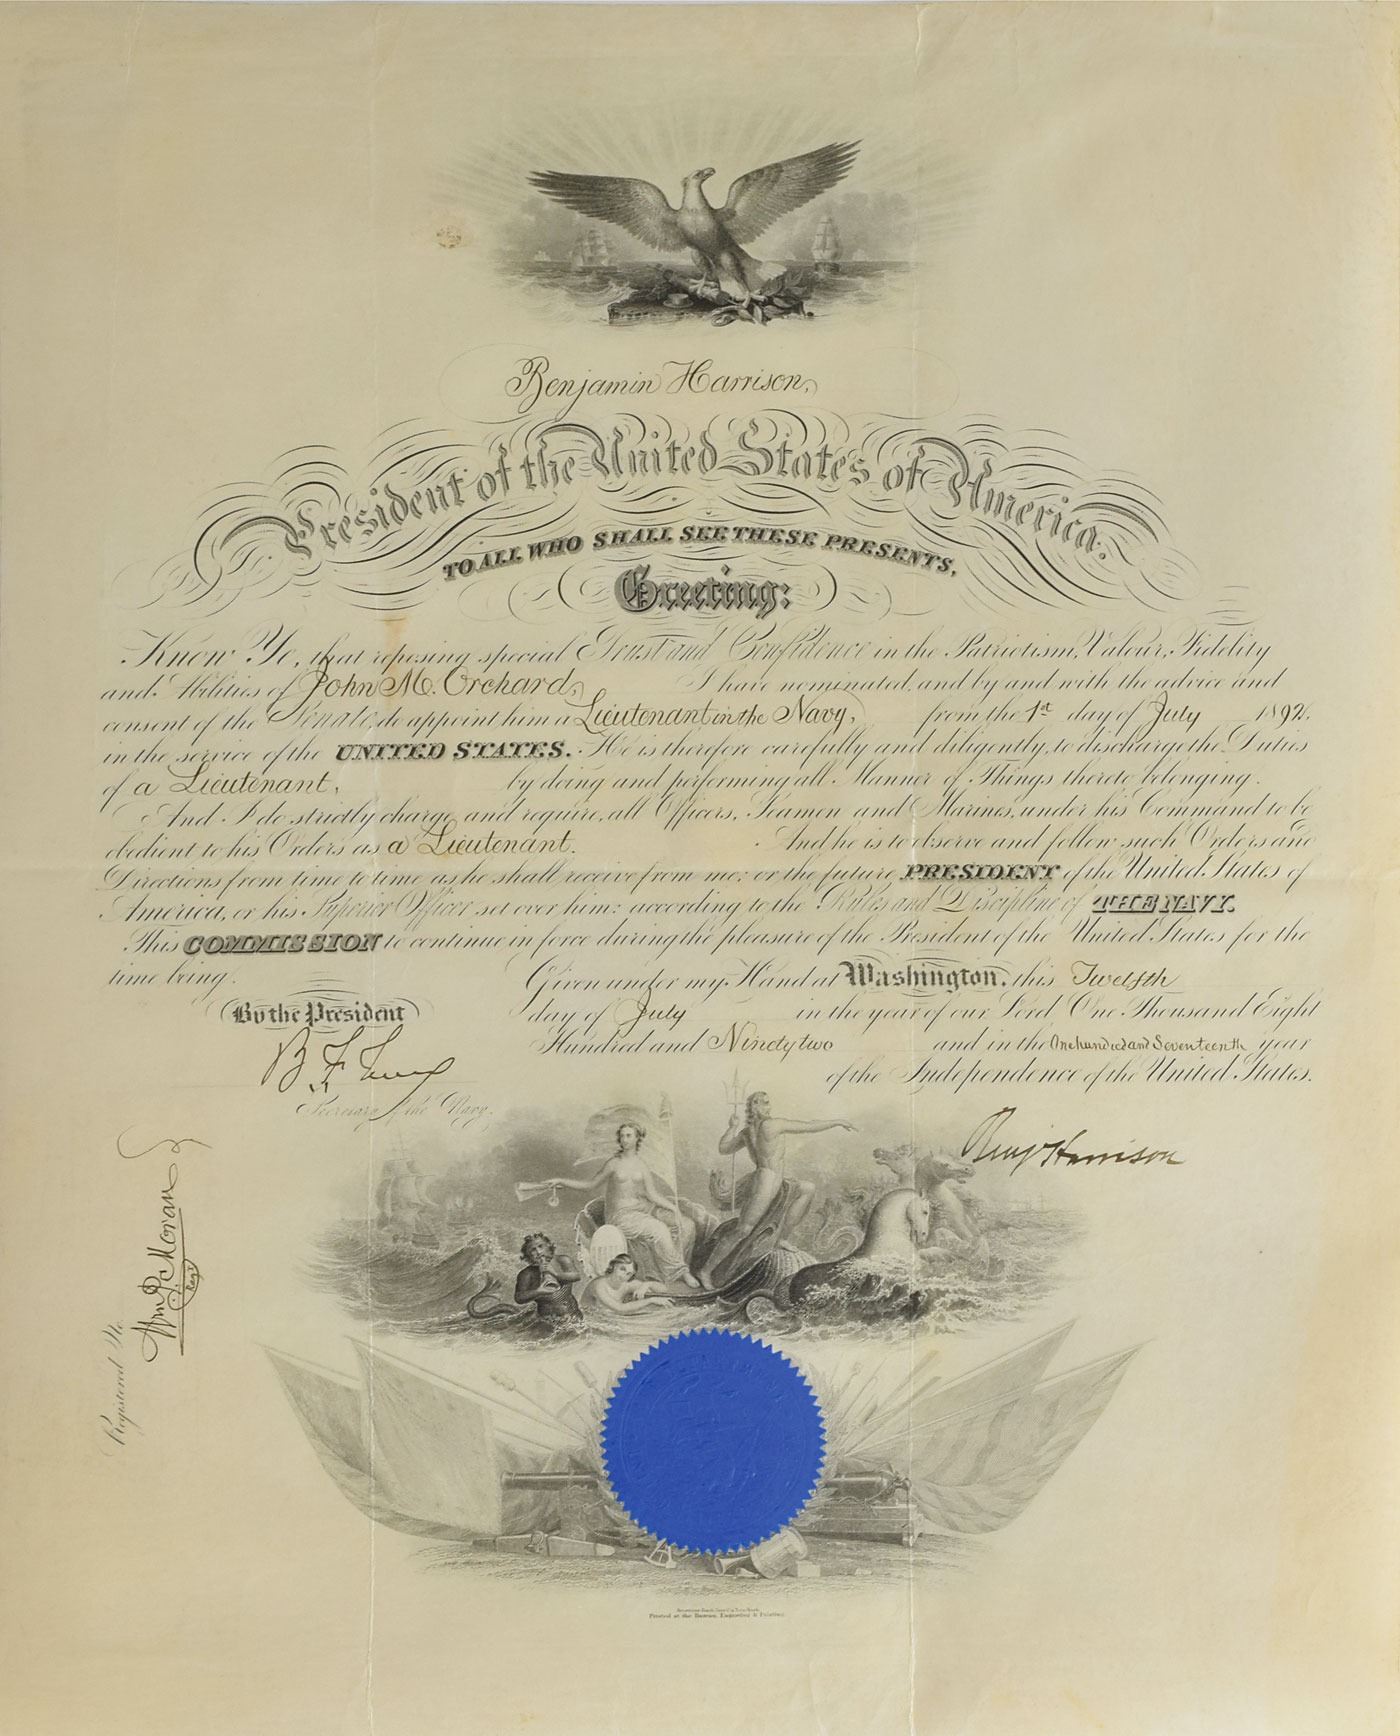 Benjamin Harrison,
President of the United States of America.
TO ALL WHO SHALL SEE THESE PRESENTS,
Greeting:
Know Ye, that reposing special Trust and Confidence in the Patriotism, Valour, Fidelity
and Abilities of John M. Orchard, I have nominated and by and with the advice and
consent of the Senate, do appoint him a Lieutenant in the Navy, from the 1st day of July 1892,
in the service of the UNITED STATES. He is therefore carefully and diligently, to discharge the Duties
of a Lieutenant, by doing and performing all Manner of Things thereto belonging.
And I do strictly charge and require, all Officers, Seamen and Marines, under his Command to be
obedient to his Orders as a Lieutenant. And he is to observe and follow such Orders and
Directions from time to time as he shall receive from me: or the future PRESIDENT of the United States of
America, or his Superior Officer set over him: according to the Rules and Discipline of THE NAVY.
This COMMISSION to continue in force during the pleasure of the President of the United States for the
time being.
Given under my Hand at Washington, this Twelfth
day of July in the year of our Lord One Thousand Eight
Hundred and Ninety two and in the One hundred and Seventeenth year
of the Independence of the United States.
By the President
B F Tracy
Secretary of the Navy.
Benj Harrison
Registered No.
Wm P. Moran
Regr
Printed at the Bureau, Engraving & Printing.